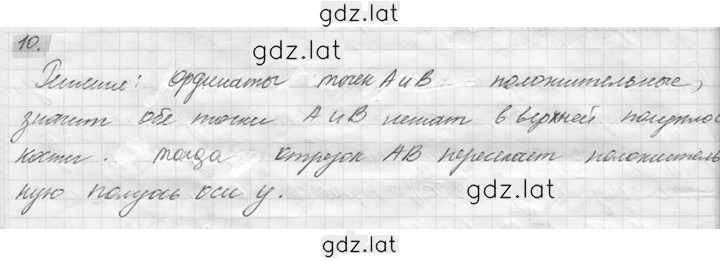 gdz.lat
10.
gdz.lat
Решение: ординаты точек А и В положительные,
значит обе точки А и В лежат в верхней полуплос
кости. тогда отрезок АВ пересекает положитель
ную полуось оси y.
gdz.lat
gdz.lat